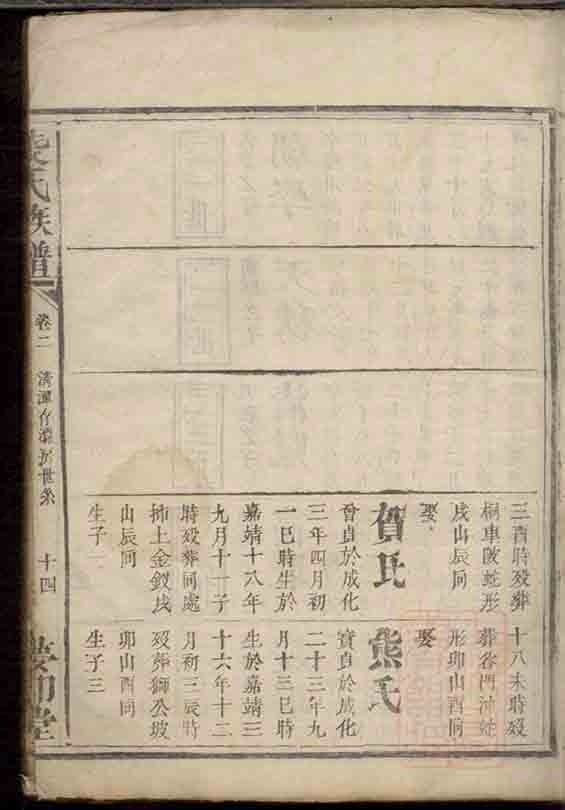 三酉時殁葬
桐車陂蛇形
戌山辰向
娶
賀氏
曾貞於成化
三年四月初
一巳時生於
嘉靖十八年
九月十一子
時殁葬同處
排上金釵戌
山辰向
生子二
十八未時殁
葬谷門沖蛇
形卯山酉向
娶
熊氏
寶貞於成化
二十三年九
月十三巳時
生於嘉靖三
十六年十二
月初三辰時
殁葬獅公坡
卯山酉向
生子三
氏族譜
卷二
世系
十四
堂